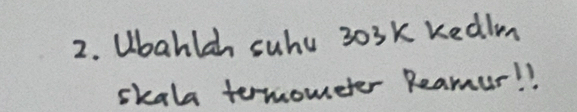 2. Ubahlah suhu 303 K kedlm
skala termometer Reamur!!